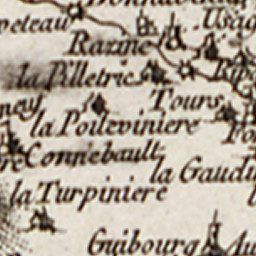 peteau
Usag
Razine
la Pilletrie
Tours
ney
la Poileviniere
Connebault
la Gaudi
la Turpiniere
Guibourg